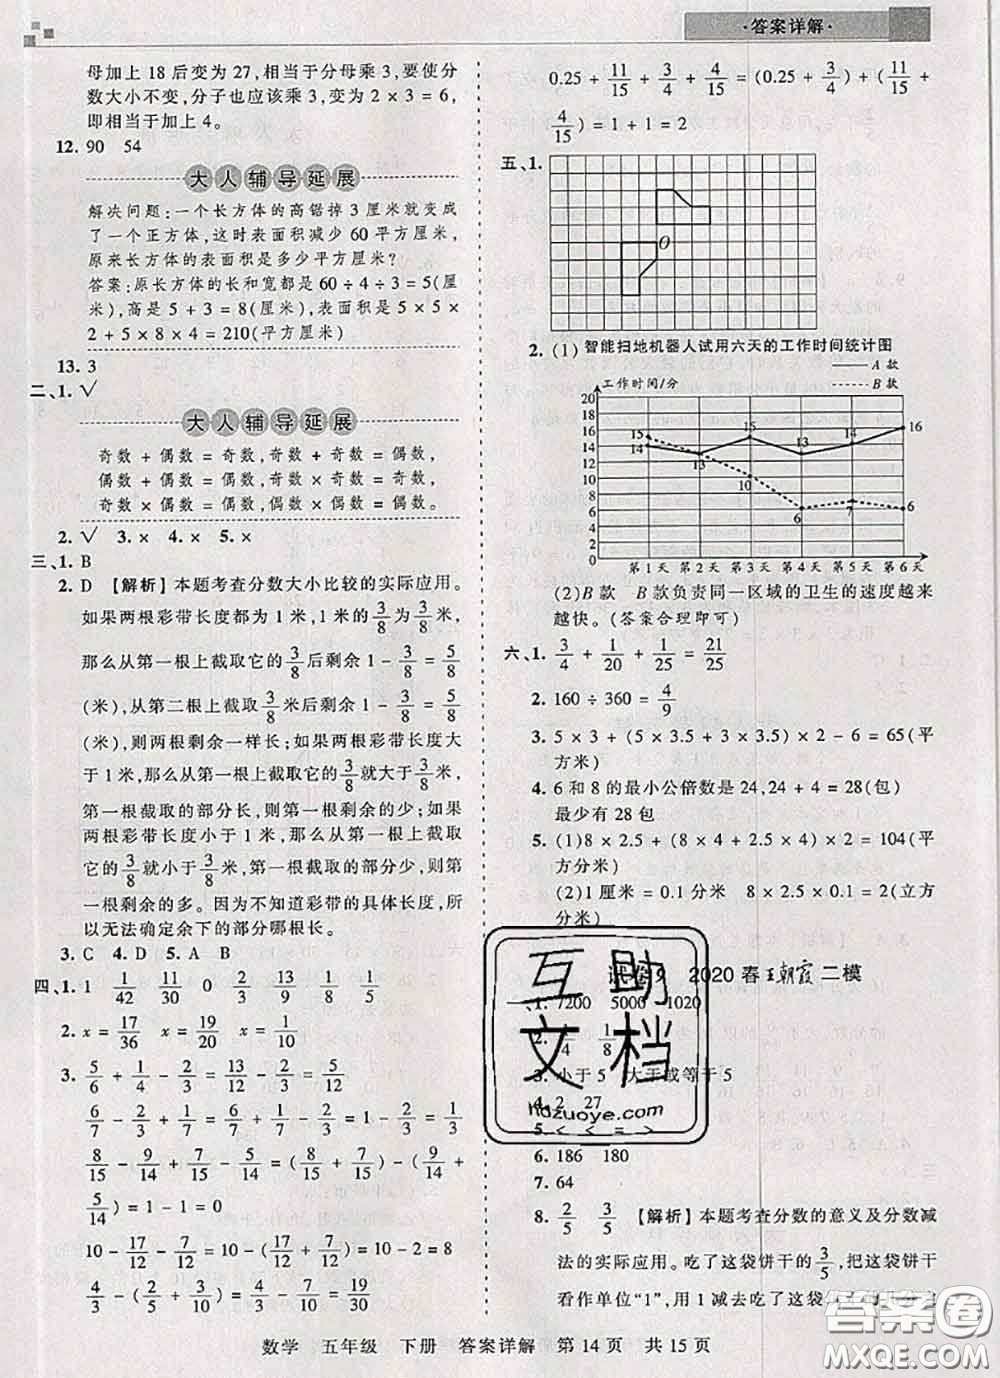 ·答案详解·
母加上 18 后变为 27,相当于分母乘 3,要使分
数大小不变,分子也应该乘 3,变为 2 × 3 = 6,
即相当于加上 4。
12. 90 54
大人辅导延展
解决问题:一个长方体的高锯掉 3 厘米就变成
了一个正方体,这时表面积减少 60 平方厘米,
原来长方体的表面积是多少平方厘米?
答案:原长方体的长和宽都是 60 ÷ 4 ÷ 3 = 5(厘
米),高是 5 + 3 = 8(厘米),表面积是 5 × 5 ×
2 + 5 × 8 × 4 = 210(平方厘米)
13. 3
二、1. √
大人辅导延展
奇数 + 偶数 = 奇数,奇数 + 奇数 = 偶数,
偶数 + 偶数 = 偶数,奇数 × 奇数 = 奇数,
奇数 × 偶数 = 偶数,偶数 × 偶数 = 偶数。
2. √ 3. × 4. × 5. ×
三、1. B
2. D 【解析】本题考查分数大小比较的实际应用。
如果两根彩带长度都为 1 米,1 米的 3/8 为 3/8 米,
那么从第一根上截取它的 3/8 后剩余 1 - 3/8 = 5/8
(米),从第二根上截取 3/8 米后剩余 1 - 3/8 = 5/8
(米),则两根剩余一样长;如果两根彩带长度大
于 1 米,那么从第一根上截取的 3/8 就大于 3/8 米,
第一根截取的部分长,第一根剩余的少;如果
两根彩带长度小于 1 米,那么从第一根上截取
它的 3/8 就小于 3/8 米,第一根截取的部分少,第
一根剩余的多。因为不知道彩带的具体长度,所
以无法确定余下的部分哪根长。
3. C 4. D 5. A B
四、1. 1 1/42 30/11 11/30 1/2 2/5 1/2
2. x = 17/36 x = 19/20 x = 1/10
3. 5/6 + 1/4 - 2/4 = 13/12 - 2/4 = 7/12
6/7 - 2/3 + 1/7 = 6/7 + 1/7 - 2/3 = 1 - 2/3 = 1/3
8/15 - 9/14 + 7/15 - 5/14 = (8/15 + 7/15) - (9/14 +
5/14) = 1 - 1 = 0
10 - 7/12 - 17/12 = 10 - (7/12 + 17/12) = 10 - 2 = 8
4/3 - (2/5 + 3/10) = 4/3 - 7/10 = 19/30
0.25 + 11/15 + 3/4 + 4/15 = (0.25 + 3/4) + (11/15 +
4/15) = 1 + 1 = 2
五、1.
O
2. (1) 智能扫地机器人试用六天的工作时间统计图
A 款
工作时间/分 B 款
20
18
16
14
12
10
8
6
4
2
0
15 14 13 15 10 13 6 14 7 16 6
第1天 第2天 第3天 第4天 第5天 第6天
(2)B 款 B 款负责同一区域的卫生的速度越来
越快。(答案合理即可)
六、1. 3/4 + 1/20 + 1/25 = 21/25
2. 160 ÷ 360 = 4/9
3. 5 × 3 + (5 × 3.5 + 3 × 3.5) × 2 - 6 = 65(平
方米)
4. 6 和 8 的最小公倍数是 24,24 + 4 = 28(包)
最少有 28 包
5. (1)8 × 2.5 + (8 × 4 + 2.5 × 4) × 2 = 104(平
方分米)
(2)1 厘米 = 0.1 分米 8 × 2.5 × 0.1 = 2(立方
分米)
试卷 9 2020 春王朝霞二模
一、1. 7200 5000 1020
2. 1/4 1/8
3. 小于 5 大于或等于 5
4. 2 27
5. < < = >
6. 186 180
7. 64
8. 2/5 3/5 【解析】本题考查分数的意义及分数减
法的实际应用。吃了这袋饼干的 3/5,把这袋饼干
看作单位“1”,用 1 减去吃了这袋
互助文档
hdzuoye.com
答案圈
MXQE.COM
数学 五年级 下册 答案详解 第 14 页 共 15 页